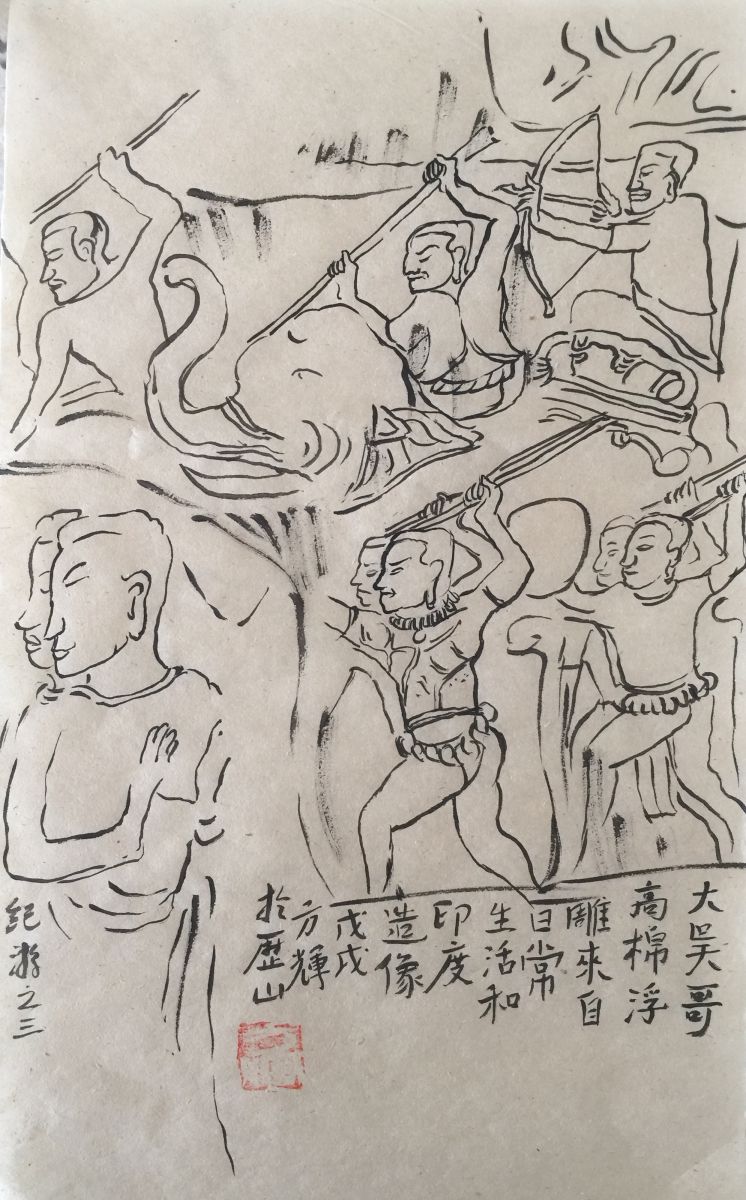 大吴哥
高棉浮
雕來自
日常
生活和
印度
造像
戊戌
方輝
於歷山
紀游之三